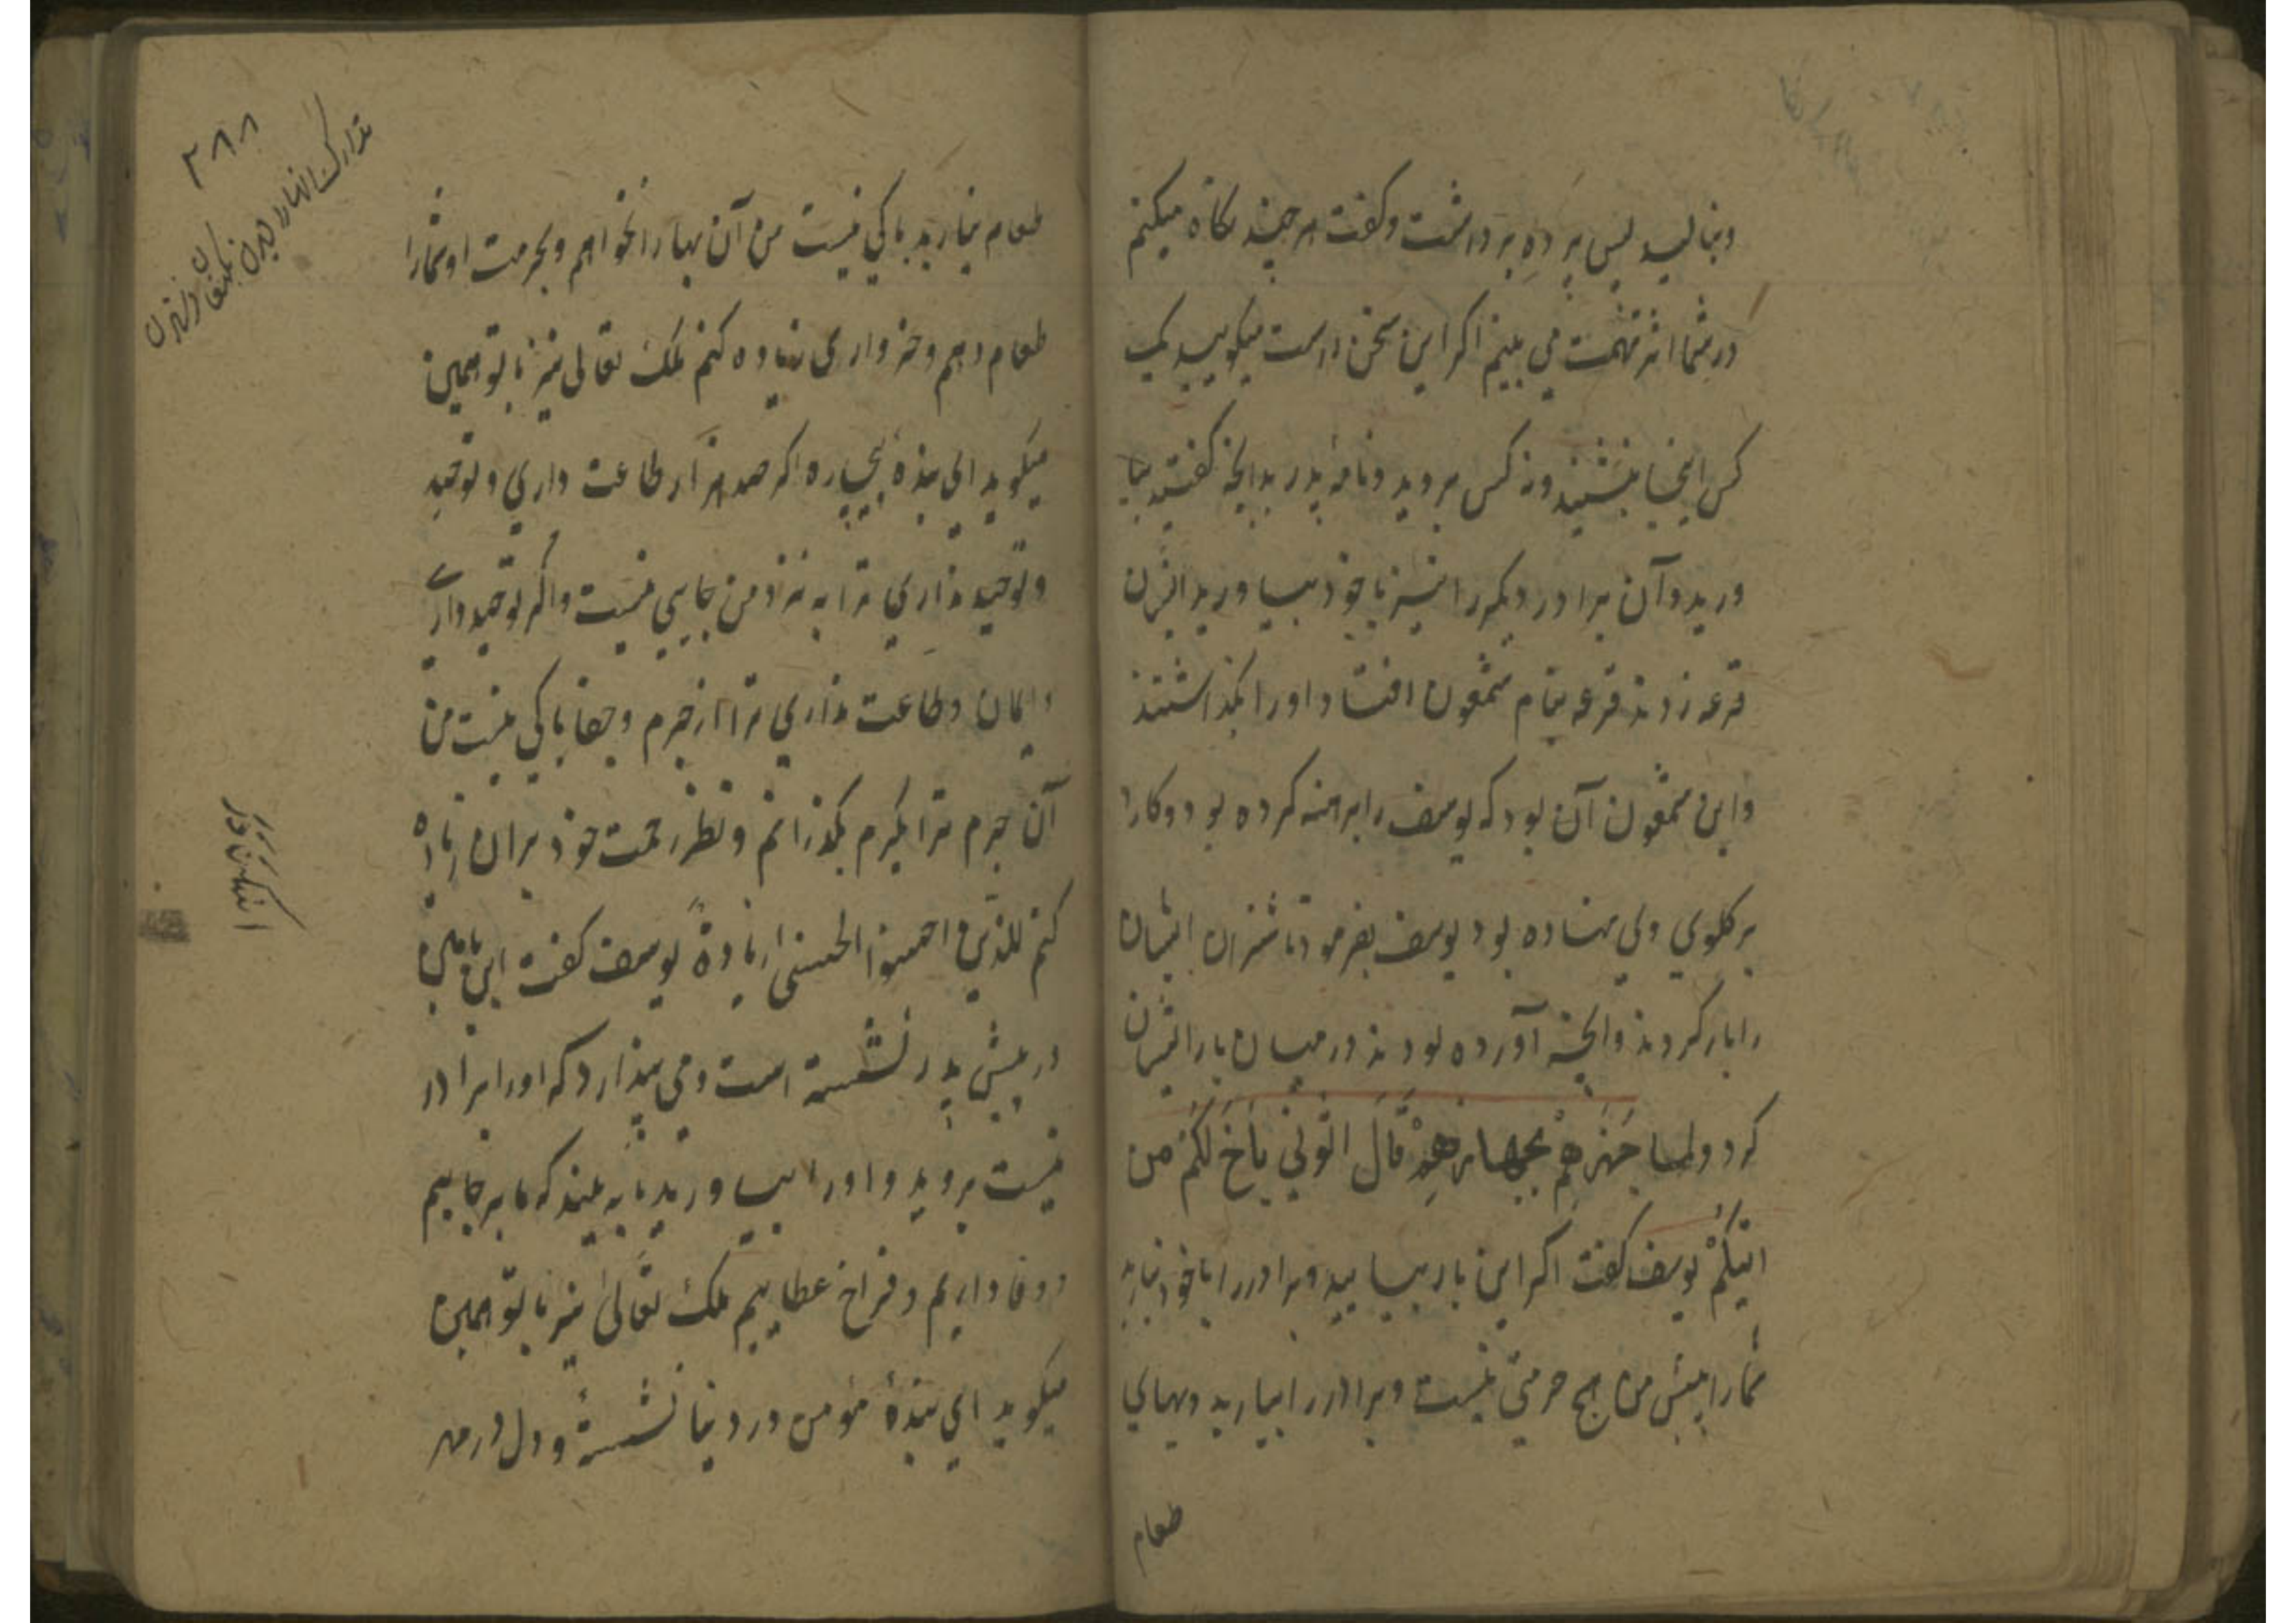 وبنالید پس پرده برداشت وکفت هرچند نکاه میکنم
در شما اثر تهمت می بینم اکر این سخن راست میکویید یک
کس اینجا بنشیند ونه کس بروید ونامهٔ پدر بدانچه کفتید بیا
ورید وآن برادر دیکر را نیز با خود بیاورید ایشان
قرعه زدند قرعه بنام شمعون افتاد اورا بکذاشتند
واین شمعون آن بود که یوسف را برهنه کرده بود وکارد
بر کلوی وی نهاده بود یوسف بفرمود تا شتران ایشان
را بار کردند وانچه آورده بودند در میان بار ایشان
کرد ولما جَهَّزَهُمْ بِجَهَازِهِمْ قَالَ ائْتُونِي بِأَخٍ لَكُمْ مِن
ابیکُمْ یوسف کفت اکر این بار بیایید وبرادر را با خود نیارید
شما را پیش من هیچ حرمتی نیست وبرادر را بیارید وبهای
طعام
۲۸۸
طعام نیارید باکی نیست من آن بها را نخواهم وبحرمت او شما را
طعام دهم وخرواری زیاده کنم ملک تعالی نیز با تو همین
میکوید ای بنده بیچاره اکر صد هزار طاعت داری وتوحید
وتوحید نداری ترا به نزد من جایی نیست واکر توحید داری
وایمان وطاعت نداری ترا از جرم وجفا باکی نیست من
آن جرم ترا بکرم بکذرانم ونظر رحمت خود بر آن زیاده
کنم للذین احسنوا الحسنی وزیادة یوسف کفت ابن یامین
در پیش پدر نشسته است ومی پندارد که اورا برادر
نیست بروید واورا بیاورید تا به بیند که ما بر جاییم
ووفا داریم وفراخ عطاییم ملک تعالی نیز با تو همین
میکوید ای بندهٔ مؤمن در دنیا نشستهٔ ودل در مهر